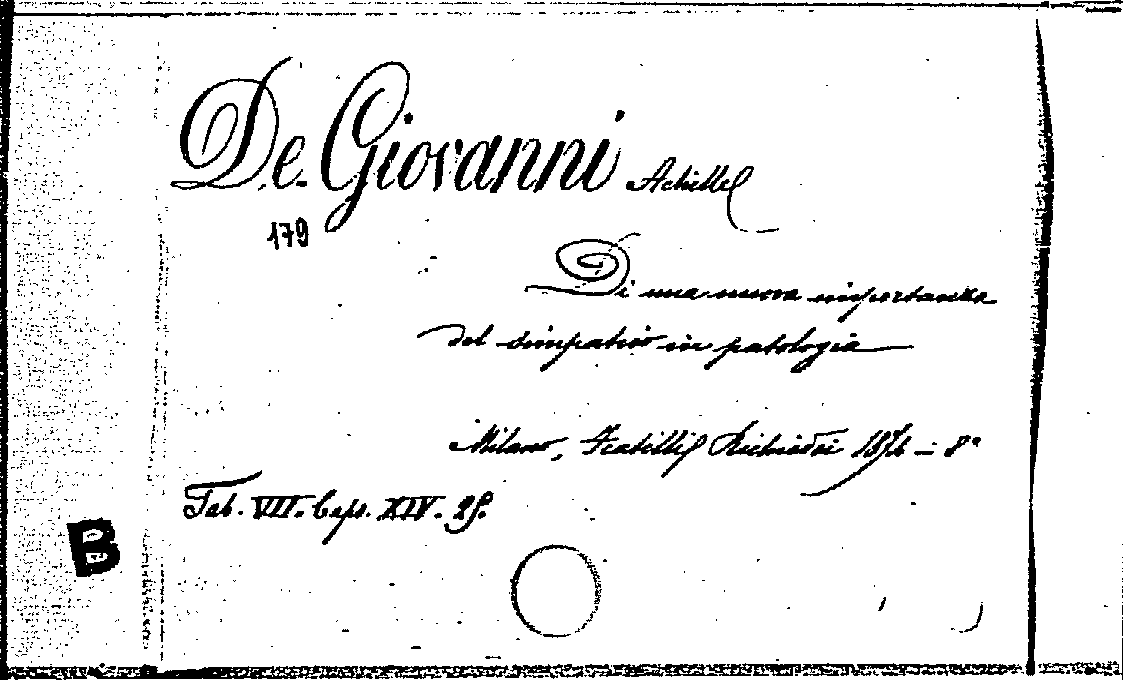 De Giovanni Achille
179
Di una nuova importanza
del simpatico in patologia
Milano, Fratelli Richiedei 1876 - 8°
Tab. VII. Caps. XIV. 29.
B